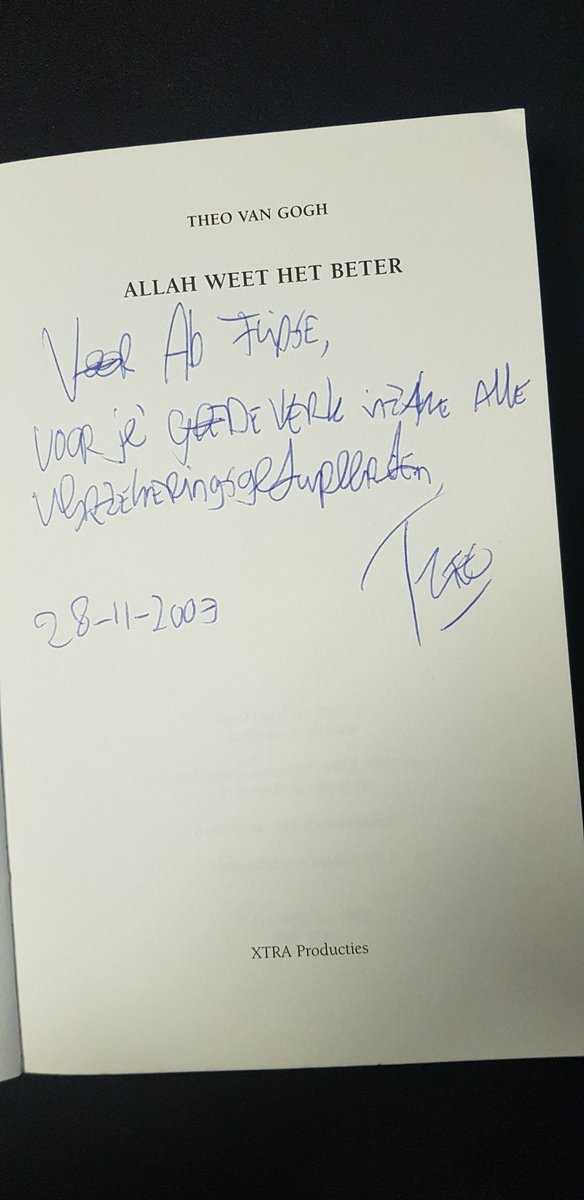 THEO VAN GOGH
ALLAH WEET HET BETER
Voor Ab Flipse,
voor je goede werk inzake alle
28-11-2003
Theo
XTRA Producties